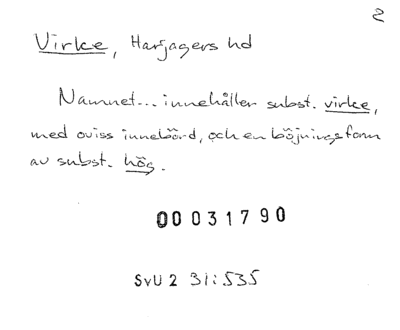 2
Virke, Harjagers hd
Namnet... innehåller subst. virke,
med oviss innebörd, och en böjningsform
av subst. hög.
00031790
SvU 2 31:535